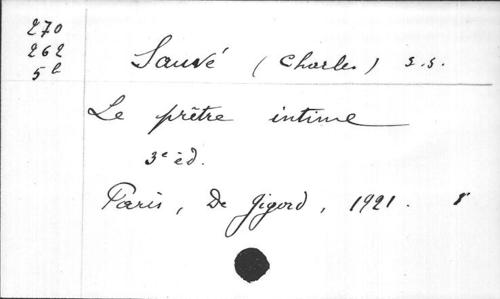 270
262
5e
Sauvé (Charles) s.s.
Le prêtre intime
3e éd.
Paris, De Gigord, 1921. 8